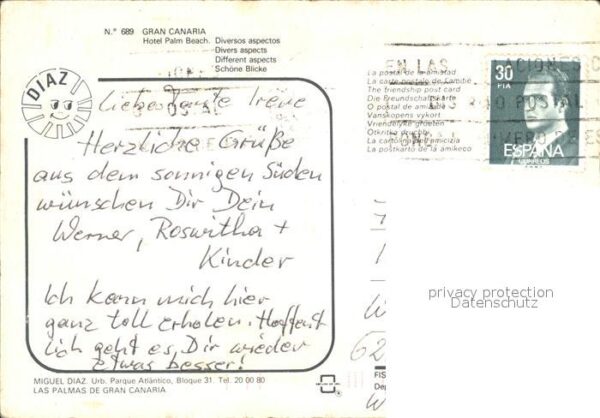 N.º 689 GRAN CANARIA
Hotel Palm Beach. Diversos aspectos
Divers aspects
Different aspects
Schöne Blicke
DIAZ
Liebe Tante Irene
Herzliche Grüße
aus dem sonnigen Süden
wünschen Dir Dein
Werner, Roswitha +
Kinder
Ich kann mich hier
ganz toll erholen. Hoffent
lich geht es Dir wieder
etwas besser!
MIGUEL DIAZ. Urb. Parque Atlántico, Bloque 31. Tel. 20 00 80
LAS PALMAS DE GRAN CANARIA
EN LAS
POSTAL
La postal de la amistad
La carte postale de l'amitié
The friendship post card
Die Freundschaftskarte
O postal de amizade
Vanskapens vykort
Vriendelijke groeten
La cartolina dell'amicizia
La postkarto de la amikeco
30
PTA
ESPAÑA
CORREOS
62
FIS
Dep
privacy protection
Datenschutz